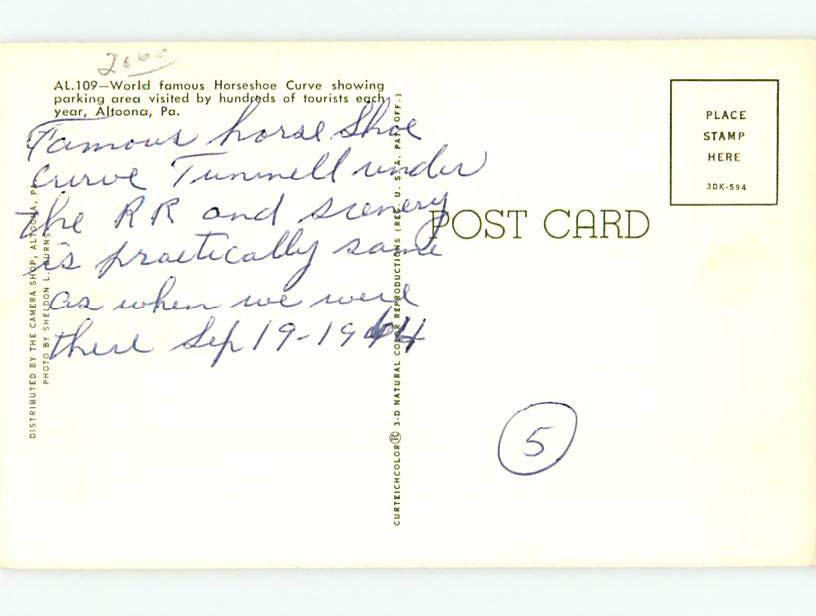 AL.109—World famous Horseshoe Curve showing
parking area visited by hundreds of tourists each
year, Altoona, Pa.
Famous horse Shoe
curve Tunnell under
the RR and scenery
is practically same
as when we were
there Sep 19-1944
DISTRIBUTED BY THE CAMERA SHOP, ALTOONA, PA.
PHOTO BY SHELDON L. BURNS
CURTEICHCOLOR® 3-D NATURAL COLOR REPRODUCTIONS (REG. U. S. A. PAT. OFF.)
POST CARD
PLACE
STAMP
HERE
3DK-594
5